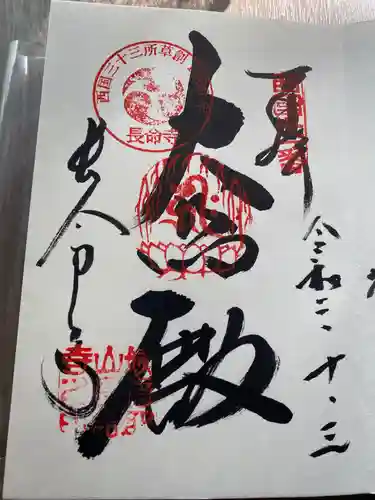 奉拝
令和二、十、三
大悲殿
西国三十三所草創
長命寺
長命寺